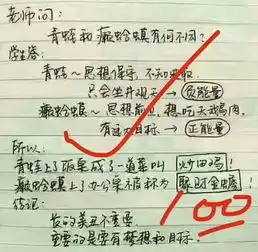 老师问:
青蛙和癞蛤蟆有何不同?
学生答:
青蛙～思想保守,不知进取
只会坐井观天→负能量
癞蛤蟆～思想前卫,想吃天鹅肉,
有远大目标→正能量
所以:
青蛙上了饭桌成了一道菜叫 炒田鸡!
癞蛤蟆上了办公桌被称为 聚财金蟾!
结论:
长的美丑不重要
重要的是要有梦想和目标.
100